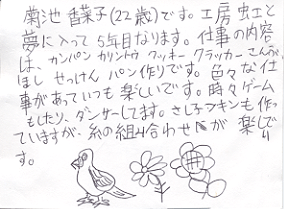 菊池 香菜子(22歳)です。工房 虫工と
夢に入って5年目なります。仕事の内容
は、カンパン カリントウ クッキー クラッカー さんが、
ほし せっけん パン作りです。色々な仕
事があっていつも楽しいです。時々ゲーム
もしたり、ダンサーしてます。さし子フキンも作っ
ていますが、糸の組み合わせが 楽しいで
す。